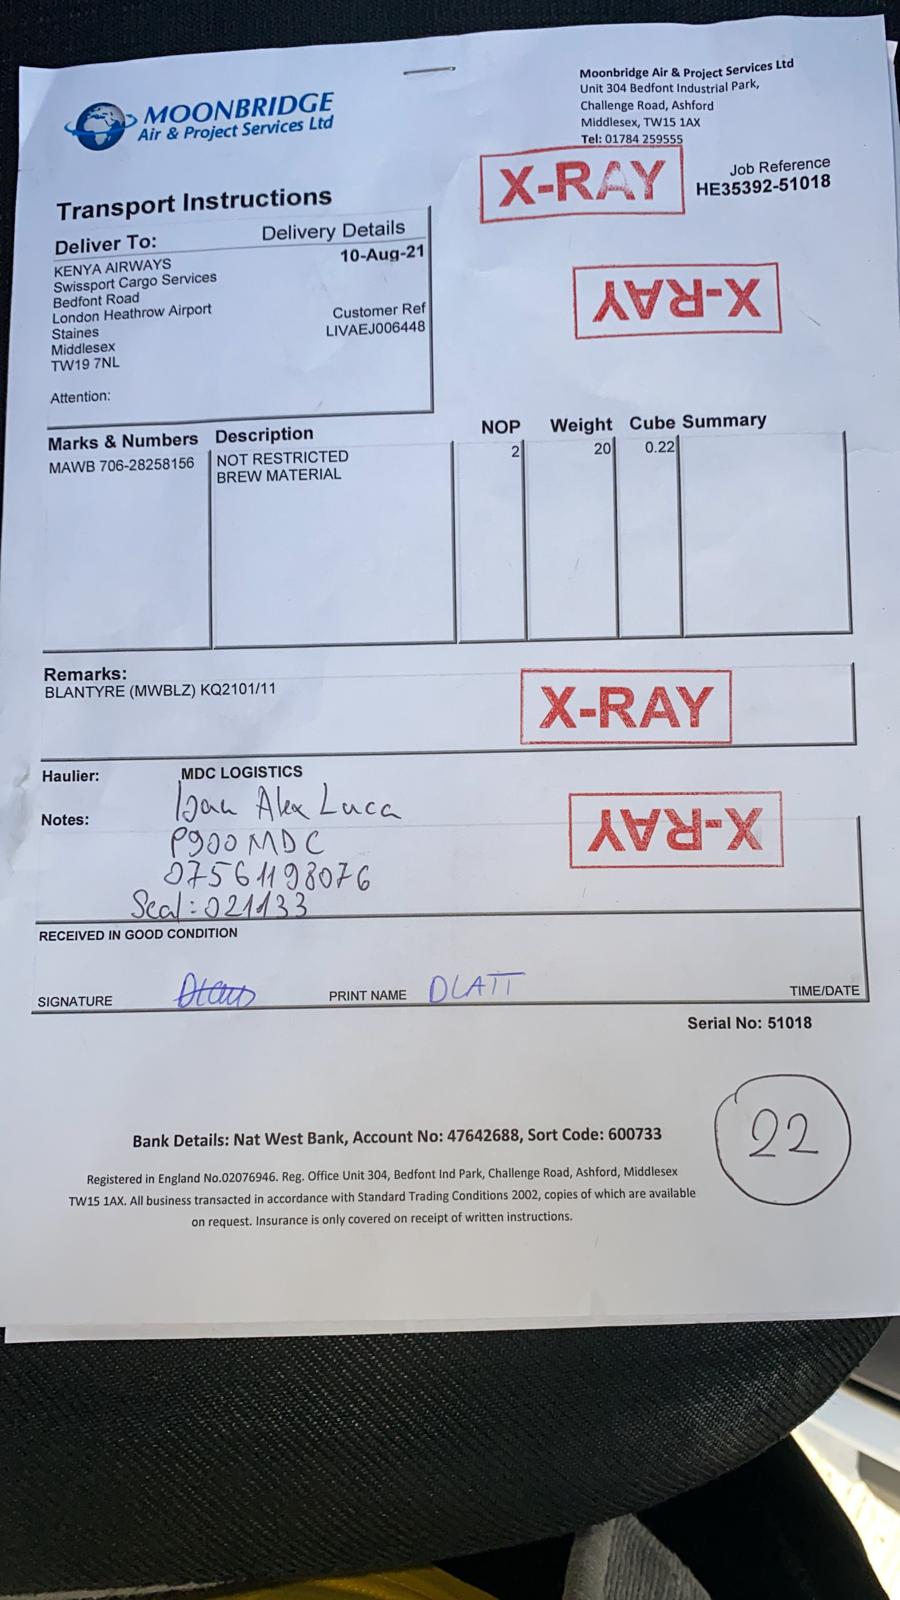 MOONBRIDGE
Air & Project Services Ltd
Moonbridge Air & Project Services Ltd
Unit 304 Bedfont Industrial Park,
Challenge Road, Ashford
Middlesex, TW15 1AX
Tel: 01784 259555
X-RAY
Job Reference
HE35392-51018
Transport Instructions
Deliver To:
KENYA AIRWAYS
Swissport Cargo Services
Bedfont Road
London Heathrow Airport
Staines
Middlesex
TW19 7NL
Attention:
Delivery Details
10-Aug-21
Customer Ref
LIVAEJ006448
X-RAY
Marks & Numbers Description NOP Weight Cube Summary
MAWB 706-28258156 NOT RESTRICTED 2 20 0.22
BREW MATERIAL
Remarks:
BLANTYRE (MWBLZ) KQ2101/11
X-RAY
Haulier: MDC LOGISTICS
Notes: Alex Luca
P900 MDC
07561198076
Seal: 021133
X-RAY
RECEIVED IN GOOD CONDITION
SIGNATURE PRINT NAME DLATT TIME/DATE
Serial No: 51018
22
Bank Details: Nat West Bank, Account No: 47642688, Sort Code: 600733
Registered in England No.02076946. Reg. Office Unit 304, Bedfont Ind Park, Challenge Road, Ashford, Middlesex
TW15 1AX. All business transacted in accordance with Standard Trading Conditions 2002, copies of which are available
on request. Insurance is only covered on receipt of written instructions.